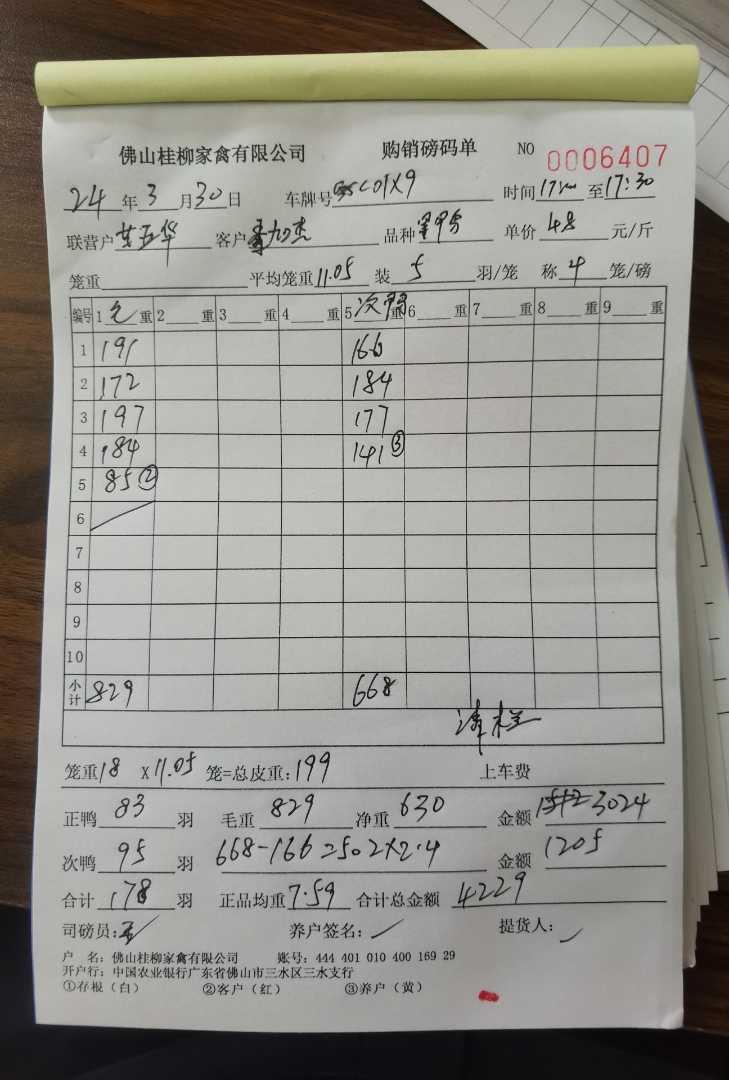 佛山桂柳家禽有限公司 购销磅码单 NO 0006407
24年3月30日 车牌号 C01X9 时间 至17:30
联营户 华 客户 杰 品种 单价4.8元/斤
笼重 平均笼重11.05 装5羽/笼 称4笼/磅
编号 1毛重 2重 3重 4重 5次鸭重 6重 7重 8重 9重
1 191 166
2 172 184
3 197 177
4 184 141③
5 85②
6
7
8
9
10
小计 829 668
清栏
笼重18 x 11.05 笼=总皮重:199 上车费
正鸭83羽 毛重829 净重630 金额 3024
次鸭95羽 668-166=502x2.4 金额1205
合计178羽 正品均重7.59 合计总金额4229
司磅员: 养户签名: 提货人:
户 名:佛山桂柳家禽有限公司 账号:444 401 010 400 169 29
开户行:中国农业银行广东省佛山市三水区三水支行
①存根(白) ②客户(红) ③养户(黄)